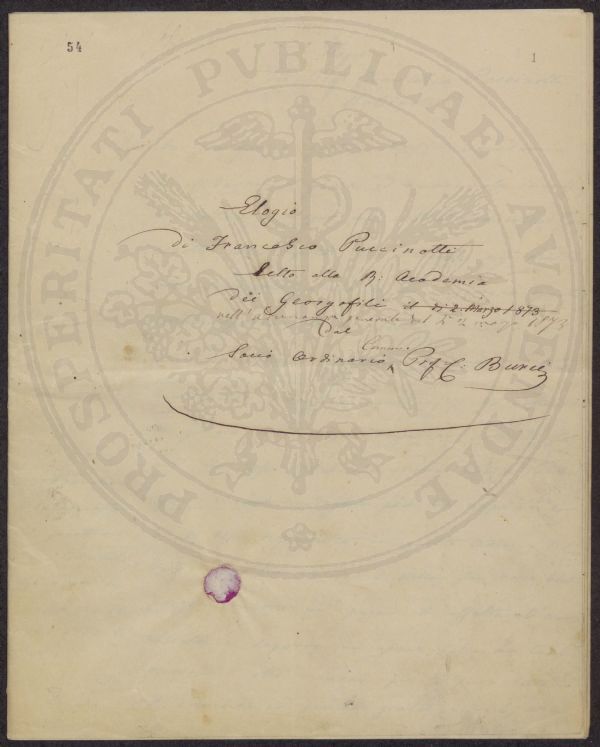 54
1
PROSPERITATI PVBLICAE AVGENDAE
Elogio
di Francesco Puccinotti
letto alla R: Accademia
dei Georgofili il dì 2 Marzo 1873
nell'adunanza del dì 2 marzo 1873
Dal
Socio Ordinario Prof. C. Burci